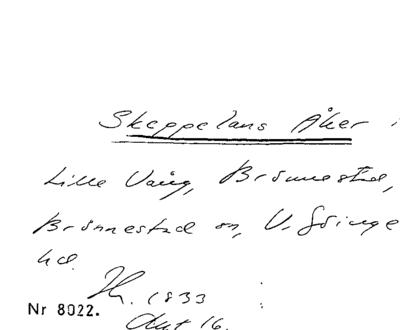 Skeppelans Åker i
Lille Vång, Brönnestad,
Brönnestad sn, V. Göinge
hd.
Jh. 1833
Nr 8022.
Akt 16.